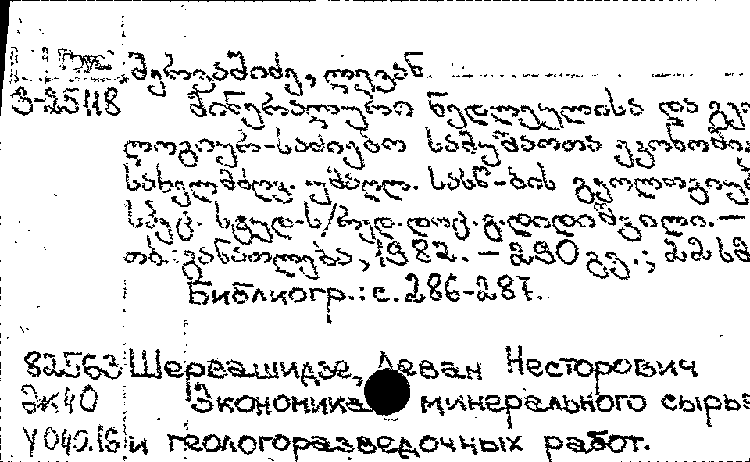 Груз
შერვაშიძე, ლევან
3-25118 მინერალური ნედლეულისა და გეო
ლოგიურ-საძიებო სამუშაოთა ეკონომი
სახელმძღვ. უმაღლ. სასწ-ბის გეოლოგიურ
სპეც. სტუდ-ს/რედ. დოც. გ. დიდიშვილი. –
თბ. განათლება, 1982. – 290 გვ.; 22 სმ
Библиогр.: с. 286-287.
82563 Шервашидзе, Леван Несторович
Эк40 Экономика минерального сырья
У040.16 и геологоразведочных работ.